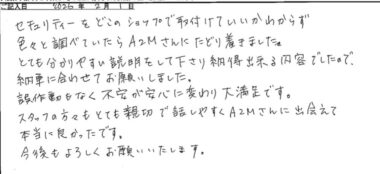 ご記入日 2026年 2月 1日
セキュリティーをどこのショップで取付けていいかわからず
色々と調べていたらA2Mさんにたどり着きました。
とても分かりやすい説明をして下さり納得出来る内容でしたので、
納車に合わせてお願いしました。
誤作動もなく不安が安心に変わり大満足です。
スタッフの方々もとても親切で話しやすくA2Mさんに出会えて
本当に良かったです。
今後もよろしくお願いいたします。